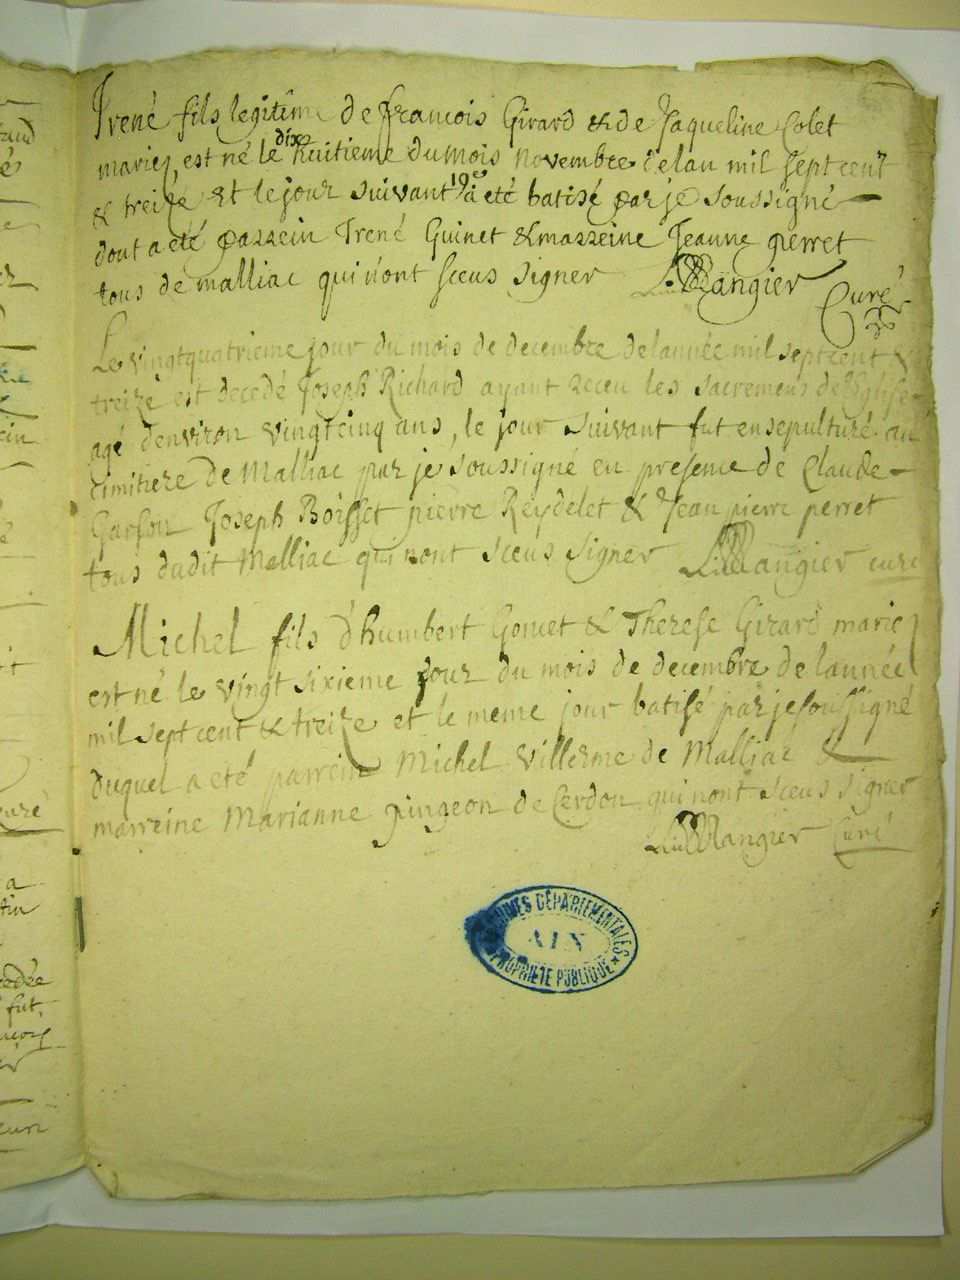 Irené fils legitime de françois Girard & de Jaqueline Colet
mariez, est né le dix huitieme du mois novembre de lan mil sept cent
& treize et le jour suivant 19e a eté batisé par je soussigné
dont a eté parrein Irené Guinet & marreine Jeanne perret
tous de malliac qui n'ont sceus signer Mangier Curé
Le vingtquatrieme jour du mois de decembre de lannée mil sept cent &
treize est decedé Joseph Richard ayant receu les sacremens de l'Eglise
agé d'environ vingt cinq ans, le jour suivant fut ensepulturé au
cimitiere de Malliac par je soussigné en presence de Claude
Joseph Boisset pierre Reydelet & Jean pierre perret
tous dudit Malliac qui n'ont sceus signer Mangier curé
Michel fils d'humbert Gonet & Therese Girard mariez
est né le vingt sixieme jour du mois de decembre de lannée
mil sept cent & treize et le meme jour batisé par je soussigné
duquel a eté parrein Michel Villerme de Malliac &
marreine Marianne pingeon de Cerdon qui n'ont sceus signer
Mangier Curé
ARCHIVES DÉPARTEMENTALES
AIN
PROPRIÉTÉ PUBLIQUE